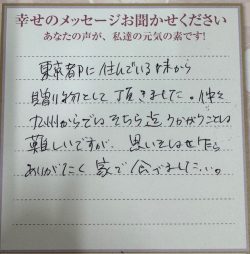 幸せのメッセージお聞かせください
あなたの声が、私達の元気の素です!
東京都内に住んでいる妹から
贈り物として頂きました。
九州からでは そちら迄うかがうことは
難しいですが 思いをはせ乍ら
ありがたく 家で 食べました。